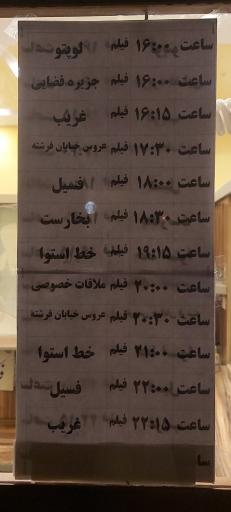 ساعت ۱۶:۰۰ فیلم لوپتو
ساعت ۱۶:۰۰ فیلم جزیره فضایی
ساعت ۱۶:۱۵ فیلم غریب
ساعت ۱۷:۳۰ فیلم عروس خیابان فرشته
ساعت ۱۸:۰۰ فیلم فسیل
ساعت ۱۸:۳۰ فیلم بخارست
ساعت ۱۹:۱۵ فیلم خط استوا
ساعت ۲۰:۰۰ فیلم ملاقات خصوصی
ساعت ۲۰:۳۰ فیلم عروس خیابان فرشته
ساعت ۲۱:۰۰ فیلم خط استوا
ساعت ۲۲:۰۰ فیلم فسیل
ساعت ۲۲:۱۵ فیلم غریب
سا